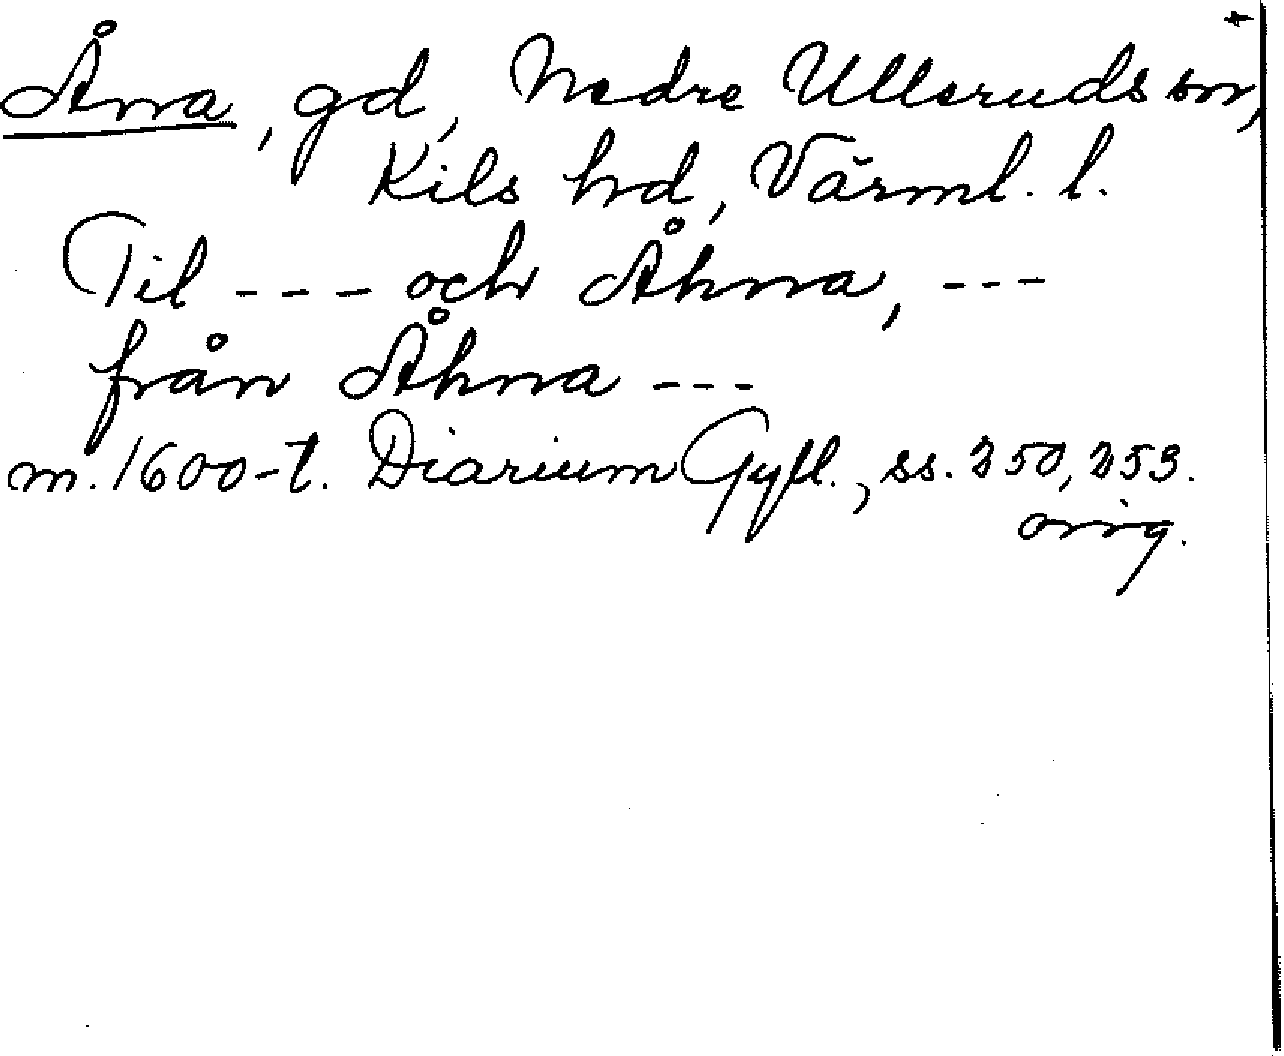 +
Åna, gd, Nedre Ulleruds sn,
Kils hd, Värml. l.
Til --- och Åhna, ---
från Åhna ---
m. 1600-t. Diarium Gyll., ss. 250, 253.
orig.